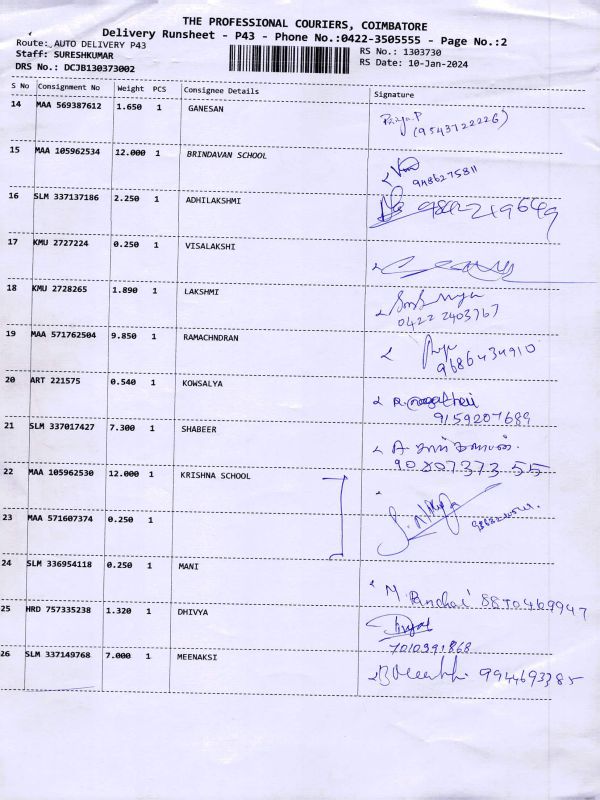 THE PROFESSIONAL COURIERS, COIMBATORE
Delivery Runsheet - P43 - Phone No.:0422-3505555 - Page No.:2
Route: AUTO DELIVERY P43
Staff: SURESHKUMAR
DRS No.: DCJB130373002
RS No.: 1303730
RS Date: 10-Jan-2024
S No Consignment No Weight PCS Consignee Details Signature
14 MAA 569387612 1.650 1 GANESAN Priya.P
(9543722226)
15 MAA 105962534 12.000 1 BRINDAVAN SCHOOL
9486275811
16 SLM 337137186 2.250 1 ADHILAKSHMI
17 KMU 2727224 0.250 1 VISALAKSHI
18 KMU 2728265 1.890 1 LAKSHMI
0422 2403767
19 MAA 571762504 9.850 1 RAMACHNDRAN
9686434910
20 ART 221575 0.540 1 KOWSALYA
9159207689
21 SLM 337017427 7.300 1 SHABEER
22 MAA 105962530 12.000 1 KRISHNA SCHOOL
23 MAA 571607374 0.250 1
24 SLM 336954118 0.250 1 MANI
M. Panchai 8870469947
25 HRD 757335238 1.320 1 DHIVYA
7010391868
26 SLM 337149768 7.000 1 MEENAKSI 9944693385